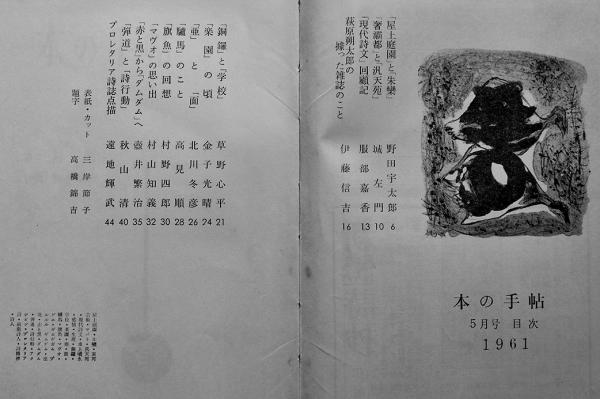 本の手帖
5月号 目次
1961
「屋上庭園」と「朱欒」 野田宇太郎 6
「奢灞都」と「汎天苑」 城左門 10
「現代詩文」回顧記 服部嘉香 13
萩原朔太郎の
拠った雑誌のこと 伊藤信吉 16
「銅鑼」と「学校」 草野心平 21
「楽園」の頃 金子光晴 24
「亜」と「面」 北川冬彦 26
「驢馬」のこと 高見順 28
「旗魚」の回想 村野四郎 30
「マヴォ」の思い出 村山知義 32
「赤と黒」から「ダムダム」へ 壺井繁治 35
「弾道」と「詩行動」 秋山清 40
プロレタリア詩誌点描 遠地輝武 44
表紙・カット 三岸節子
題字 高橋錦吉